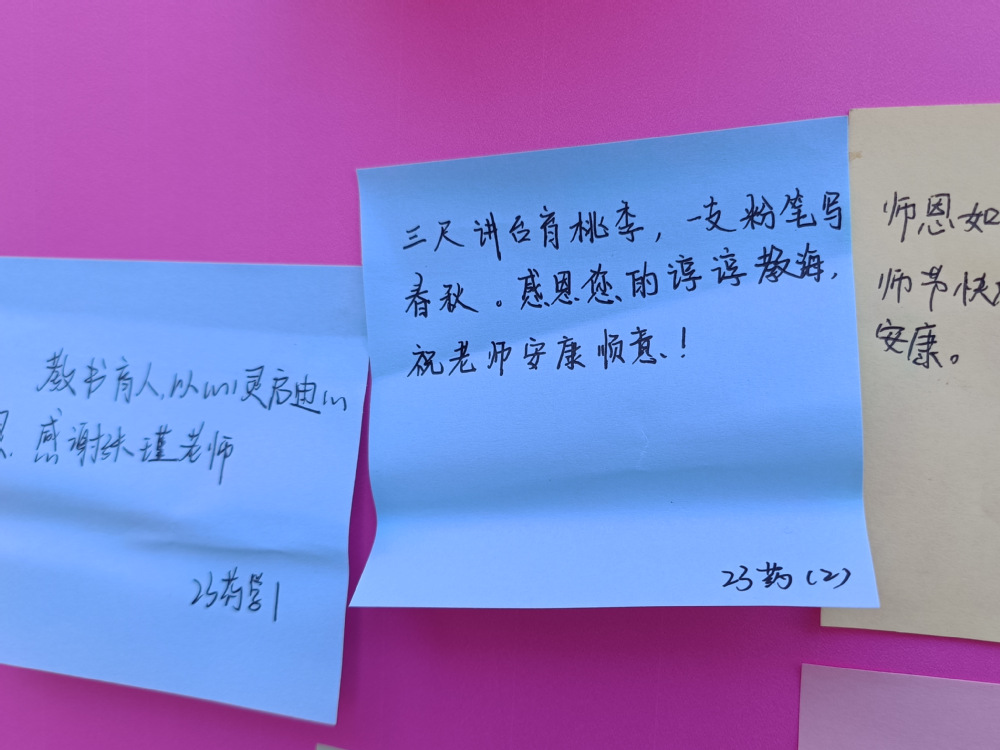 教书育人,以心灵启迪心
灵.感谢张瑾老师
23药学1
三尺讲台育桃李，一支粉笔写
春秋。感恩您的谆谆教诲，
祝老师安康顺意！
23药(2)
师恩如
师节快
安康。